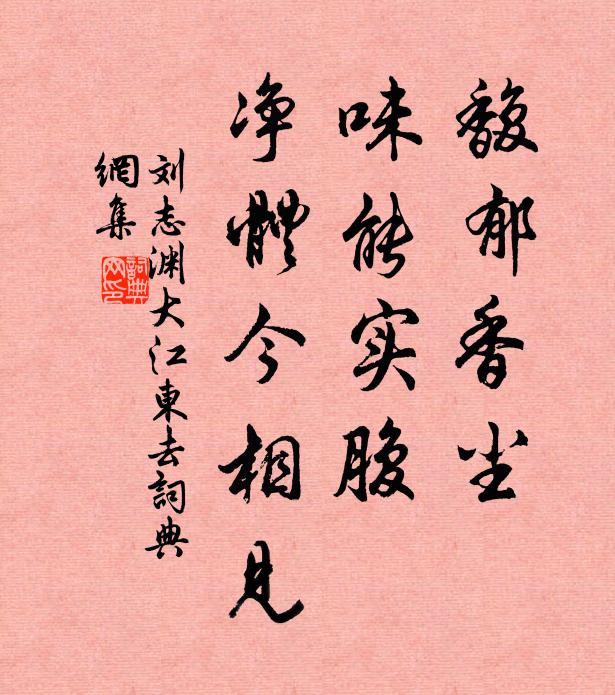 馥郁香尘
味能实腹
净體今相见
刘志渊大江東去詞典
網集
詞典網印